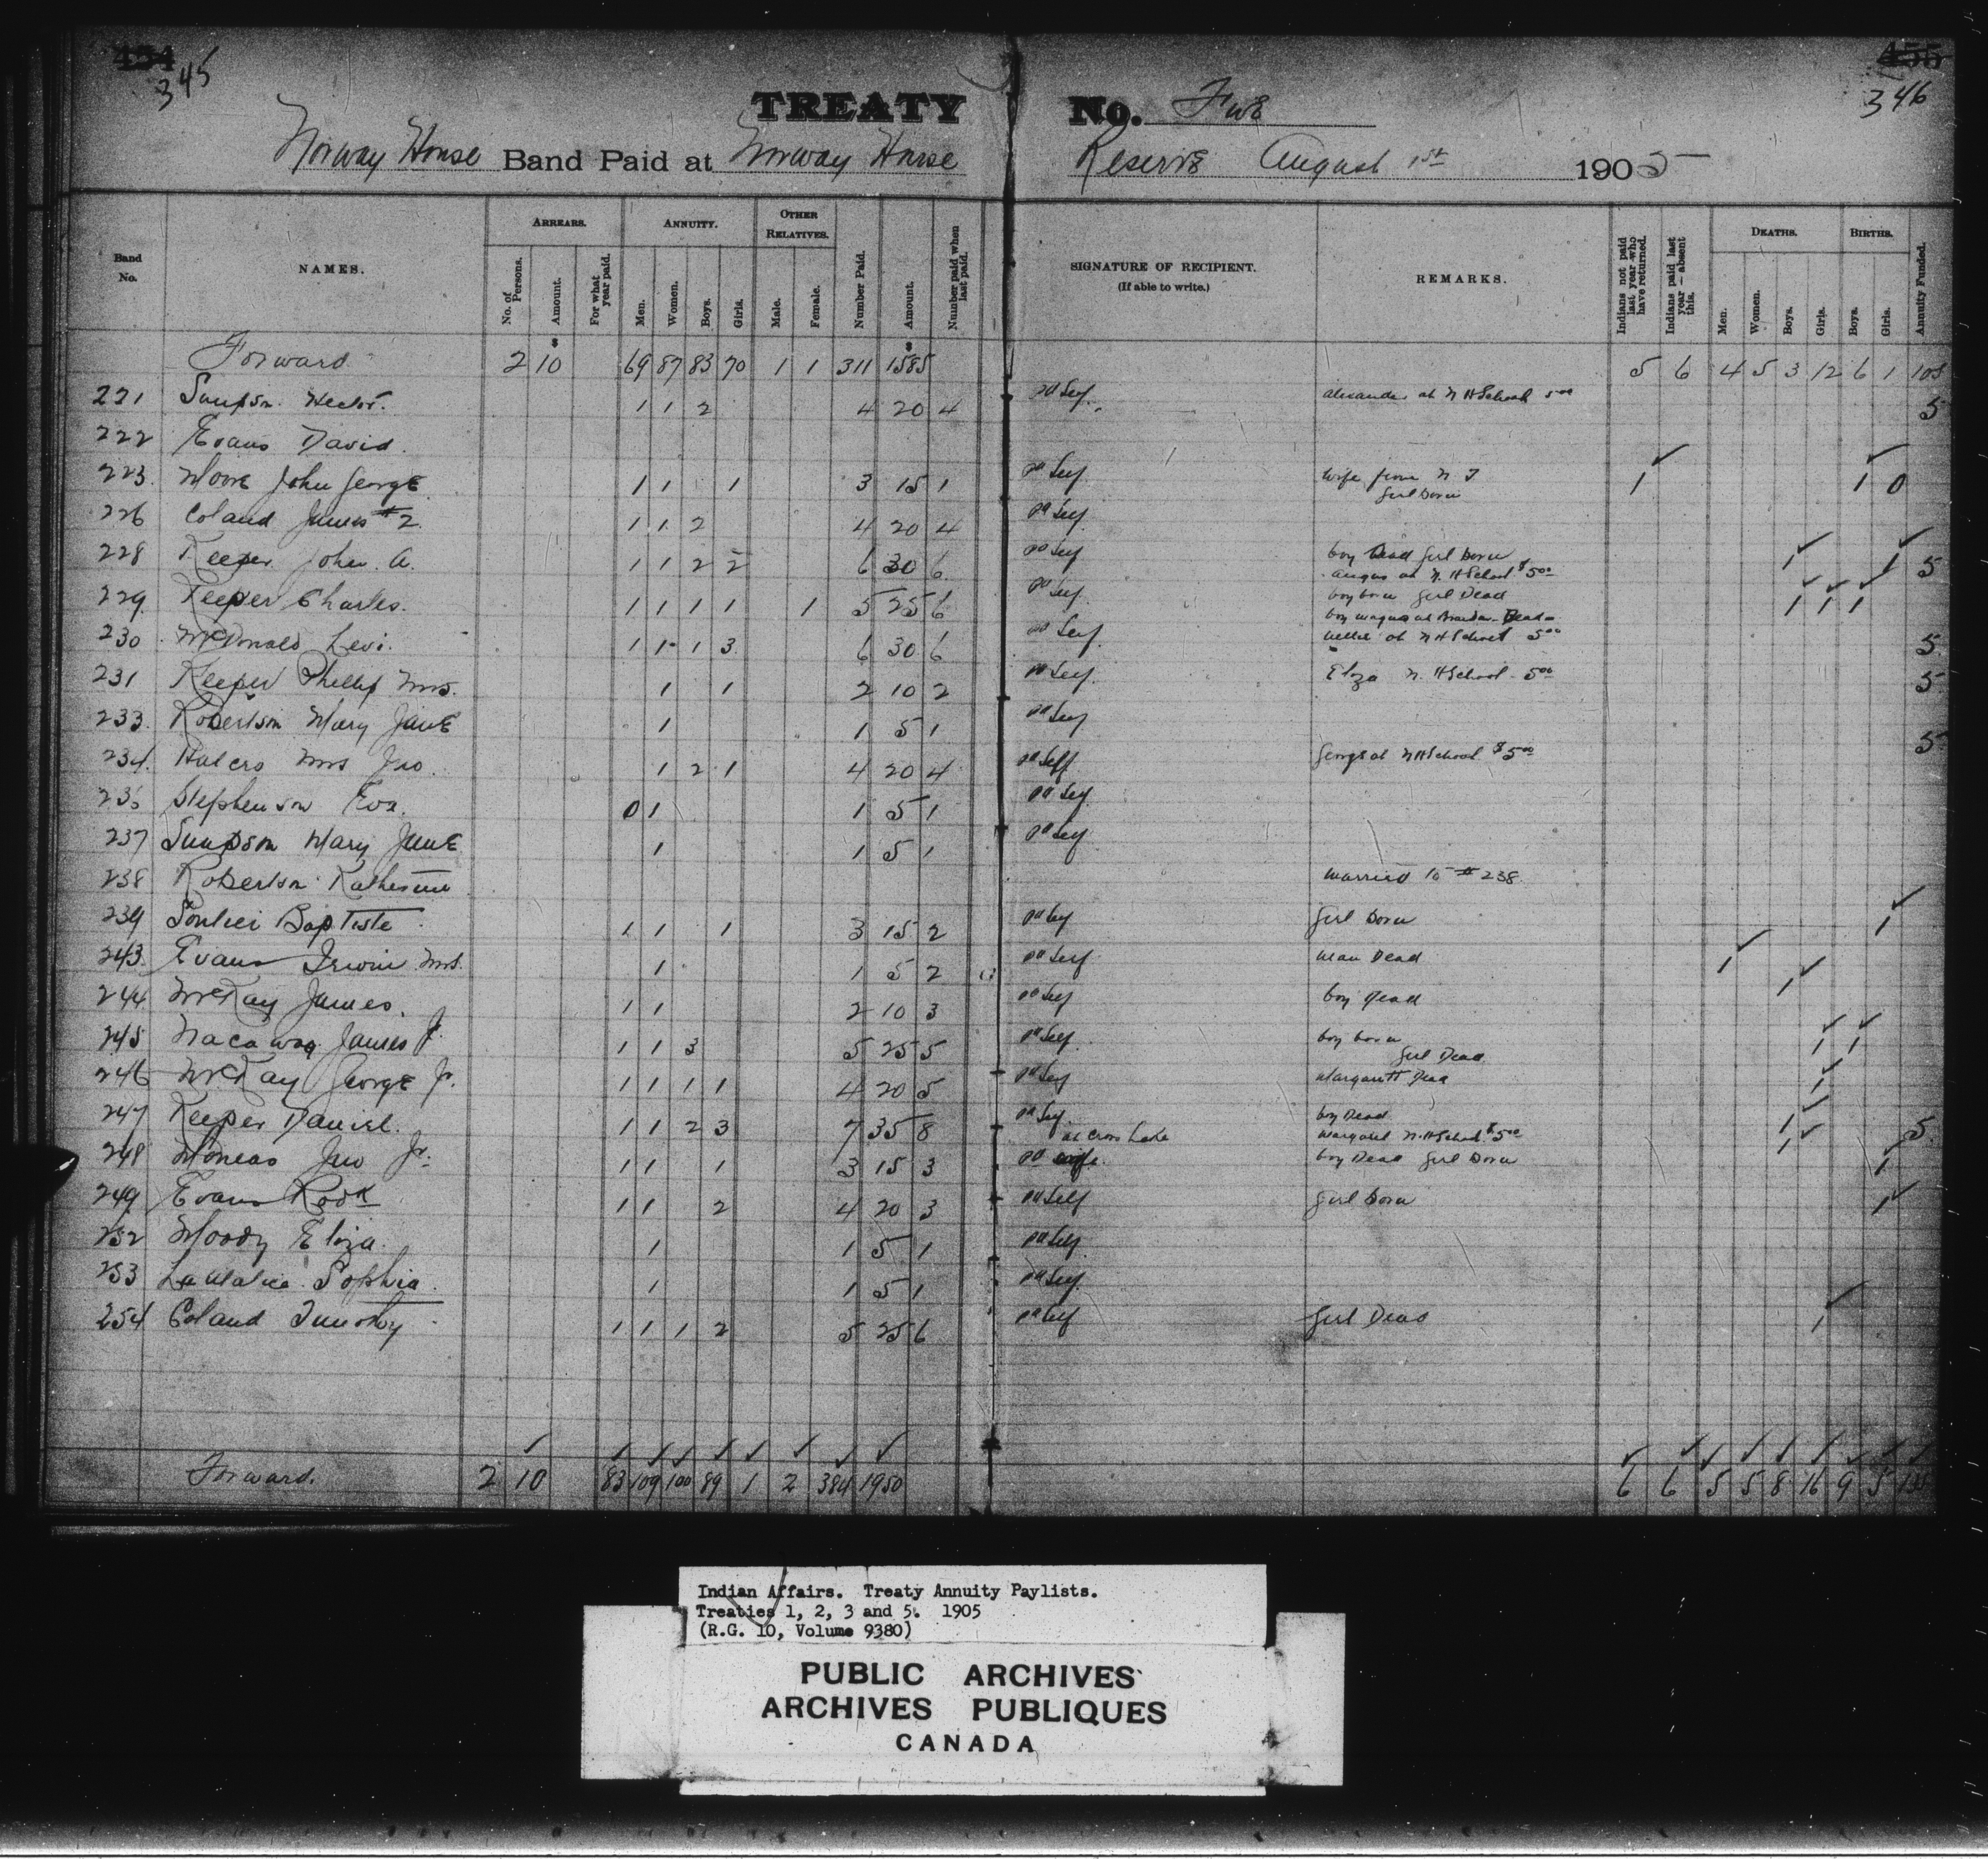 454 455
345 346
TREATY No. Five
Norway House Band Paid at Norway House Reserve August 1st 1905
Band No. NAMES. ARREARS. No. of Persons. Amount. For what year paid. ANNUITY. Men. Women. Boys. Girls. OTHER RELATIVES. Male. Female. Number Paid. Amount. Number paid when last paid. SIGNATURE OF RECIPIENT. (If able to write.) REMARKS. Indians not paid last year who have returned. Indians paid last year — absent this. DEATHS. Men. Women. Boys. Girls. BIRTHS. Boys. Girls. Annuity Funded.
Forward 2 10 69 87 83 70 1 1 311 1585 5 6 4 5 3 12 6 1 105
221 Simpson Hector. 1 1 2 4 20 4 pd Self. Alexander at N H School 5 00 5
222 Evans David.
223. Moore John George 1 1 1 3 15 1 pd Self wife from N. J 1 1 0
Girl Born
226 Coland James #2. 1 1 2 4 20 4 pd Self
228 Keeper John. A. 1 1 2 2 6 30 6 pd Self boy Dead Girl Born 1 1 5
Angus at N. H School $5 00
229. Keeper Charles. 1 1 1 1 1 5 25 6 pd Self boy born Girl Dead 1 1 1
boy Magnus at Brandon - Dead -
230 McDonald Levi. 1 1 1 3 6 30 6 pd Self Nellie at N H School 5 00 5
231 Keeper Phillip Mrs. 1 1 2 10 2 pd Self Eliza N. H School - 5 00 5
233. Robertson Mary Jane 1 1 5 1 pd Self
234. Halcro Mrs Jno. 1 2 1 4 20 4 pd Self George at N H School $5 00 5
235 Stephenson Eva. 0 1 1 5 1 pd Self
237 Simpson Mary Jane 1 1 5 1 pd Self
238 Robertson Katherine married to # 238.
239 Soulier Baptiste 1 1 1 3 15 2 pd Self Girl Born 1
243. Evans Irwin Mrs. 1 1 5 2 pd Self man Dead 1
244. McKay James. 1 1 2 10 3 pd Self boy Dead 1
245 Nacaway James Jr. 1 1 3 5 25 5 pd Self boy born 1 1
Girl Dead
246 McKay George Jr. 1 1 1 1 4 20 5 pd Self Margarett Dead 1
247 Keeper Daniel. 1 1 2 3 7 35 8 pd Self. boy Dead 1 5
at Cross Lake Margaret N. H School $5 00
248 Moneas Jno Jr. 1 1 1 3 15 3 pd wife. boy Dead Girl Born 1 1
249 Evans Rodk 1 1 2 4 20 3 pd Self Girl born 1
252 Moody Eliza. 1 1 5 1 pd Self
253 Sophia. 1 1 5 1 pd Self
254 Coland Timothy 1 1 1 2 5 25 6 pd Self Girl Dead 1
Forward. 2 10 83 109 100 89 1 2 384 1950 6 6 5 5 8 16 9 5 135
Indian Affairs. Treaty Annuity Paylists.
Treaties 1, 2, 3 and 5. 1905
(R.G. 10, Volume 9380)
PUBLIC ARCHIVES
ARCHIVES PUBLIQUES
CANADA